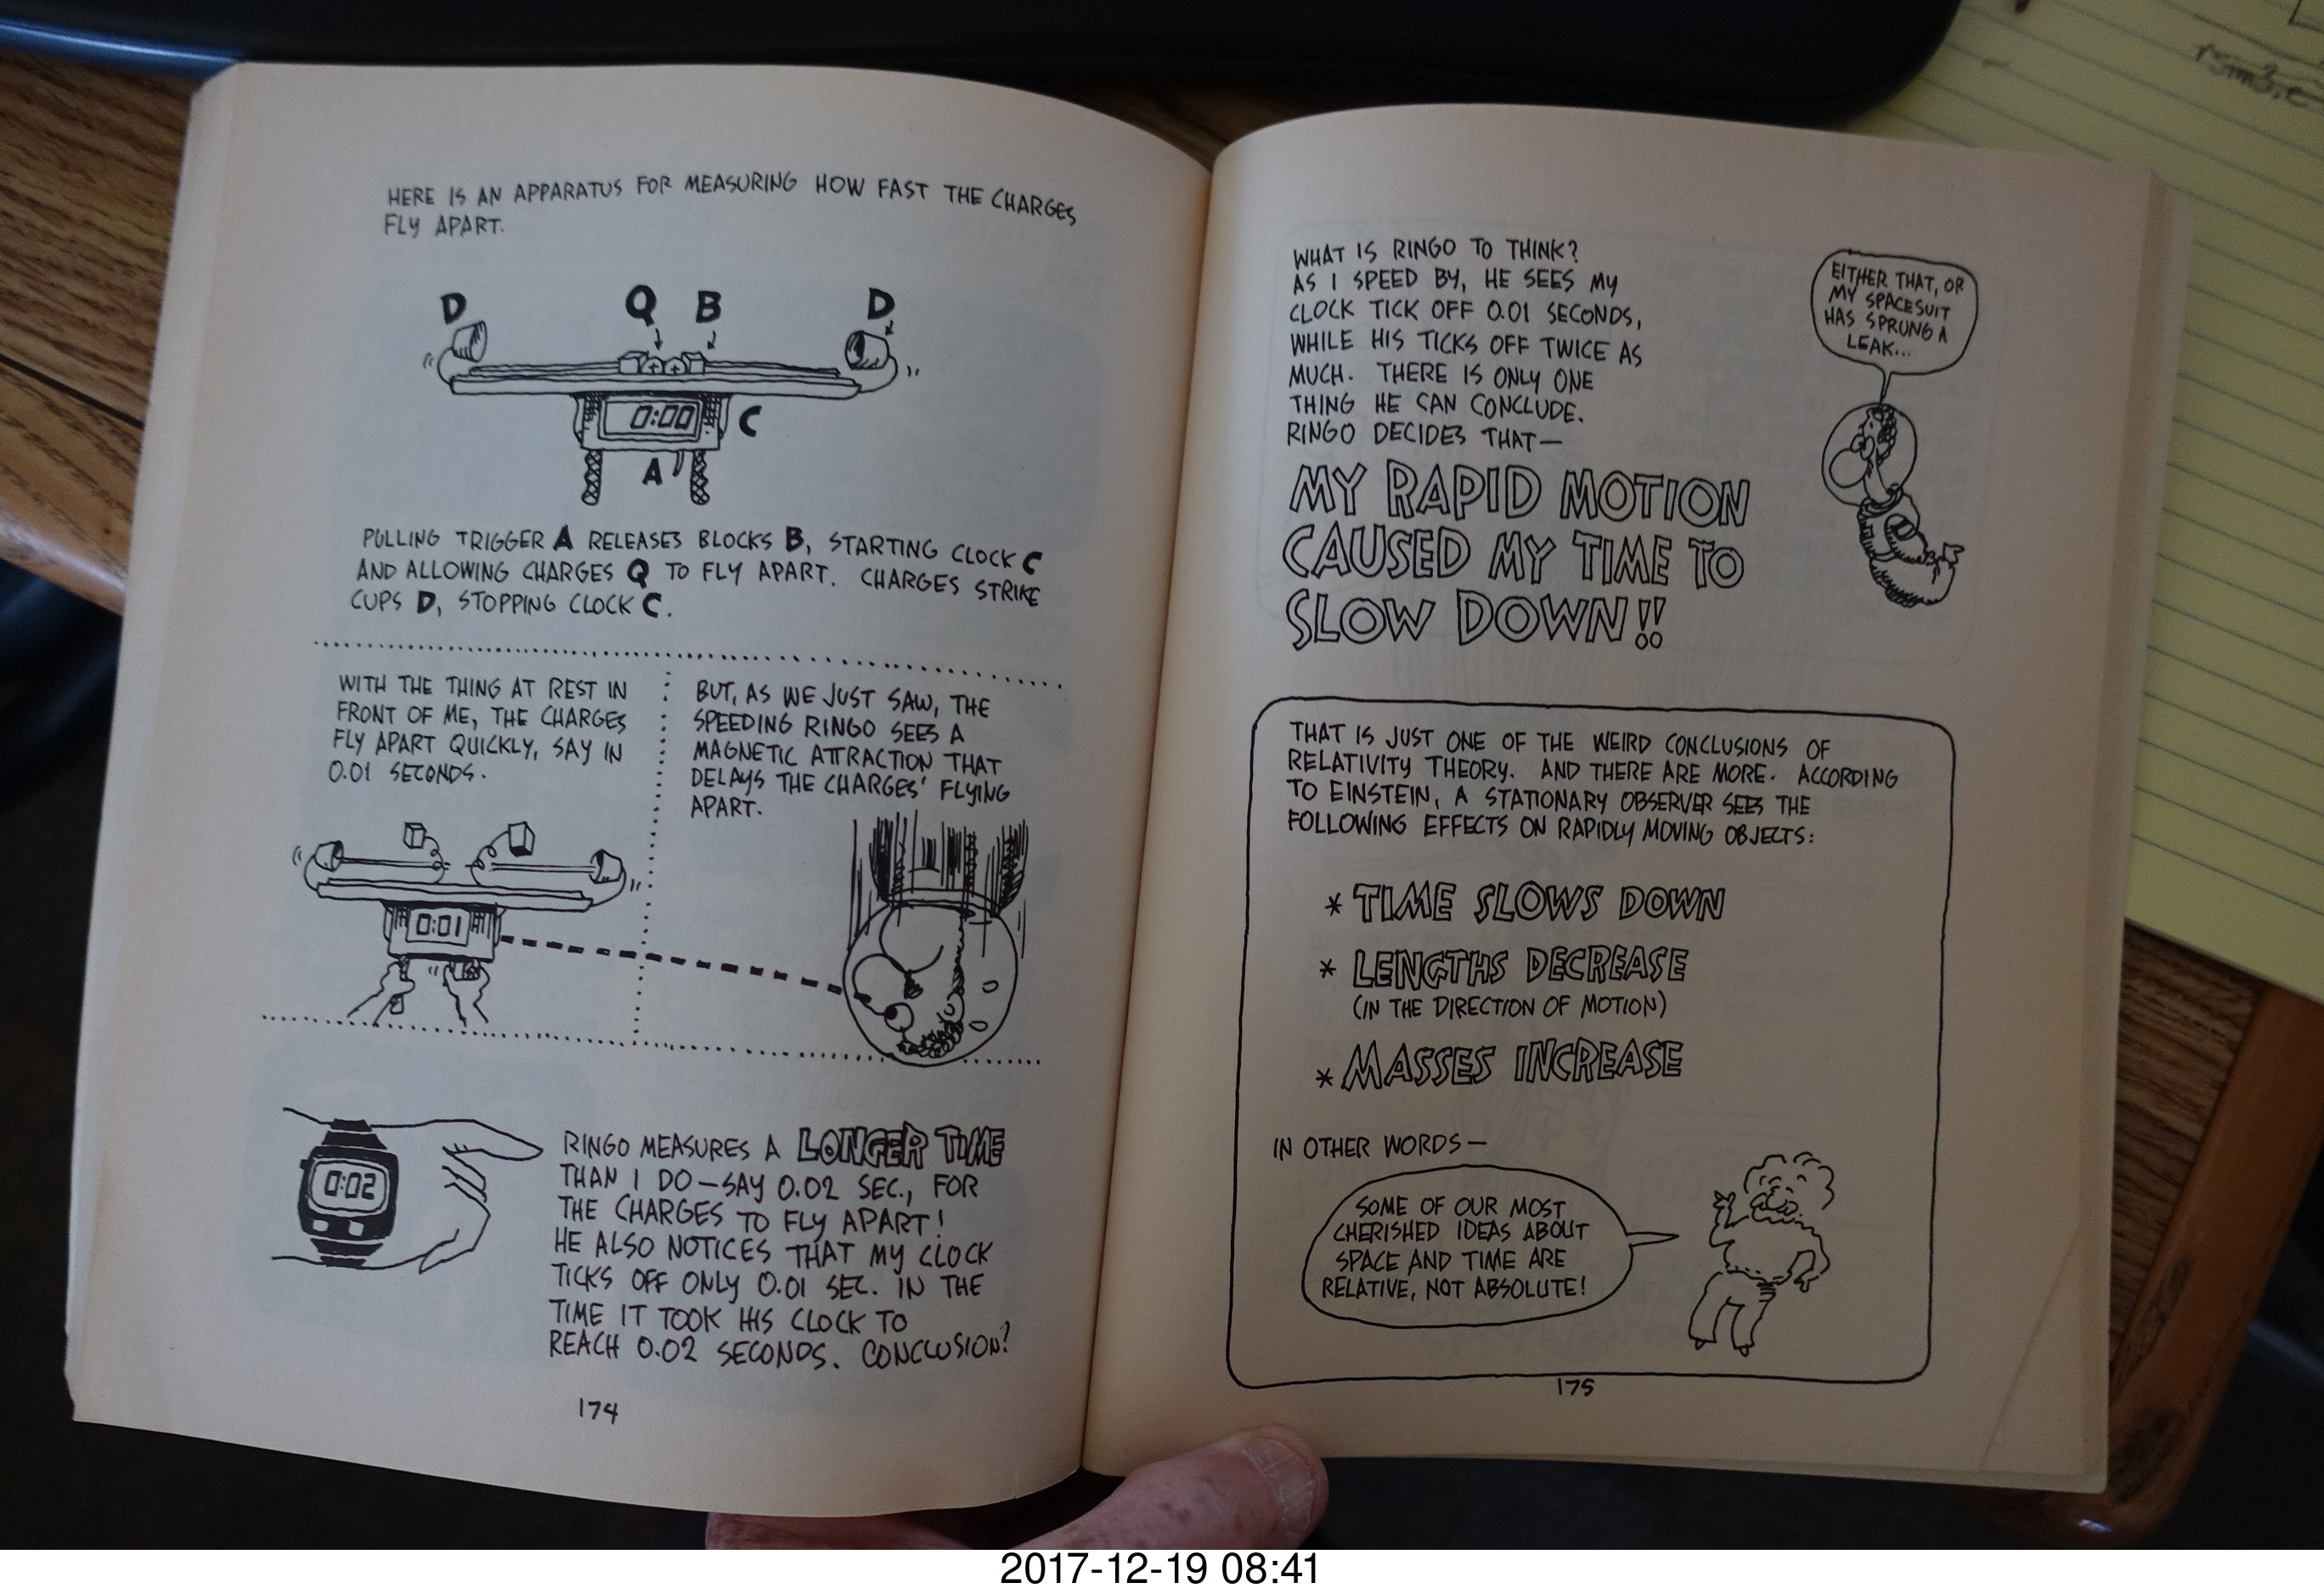 HERE IS AN APPARATUS FOR MEASURING HOW FAST THE CHARGES
FLY APART.
D
Q
B
D
0:00
C
A
PULLING TRIGGER A RELEASES BLOCKS B, STARTING CLOCK C
AND ALLOWING CHARGES Q TO FLY APART. CHARGES STRIKE
CUPS D, STOPPING CLOCK C.
WITH THE THING AT REST IN
FRONT OF ME, THE CHARGES
FLY APART QUICKLY, SAY IN
0.01 SECONDS.
0:01
BUT, AS WE JUST SAW, THE
SPEEDING RINGO SEES A
MAGNETIC ATTRACTION THAT
DELAYS THE CHARGES' FLYING
APART.
0:02
RINGO MEASURES A LONGER TIME
THAN I DO—SAY 0.02 SEC., FOR
THE CHARGES TO FLY APART!
HE ALSO NOTICES THAT MY CLOCK
TICKS OFF ONLY 0.01 SEC. IN THE
TIME IT TOOK HIS CLOCK TO
REACH 0.02 SECONDS. CONCLUSION?
174
WHAT IS RINGO TO THINK?
AS I SPEED BY, HE SEES MY
CLOCK TICK OFF 0.01 SECONDS,
WHILE HIS TICKS OFF TWICE AS
MUCH. THERE IS ONLY ONE
THING HE CAN CONCLUDE.
RINGO DECIDES THAT—
MY RAPID MOTION
CAUSED MY TIME TO
SLOW DOWN!!
EITHER THAT, OR
MY SPACESUIT
HAS SPRUNG A
LEAK...
THAT IS JUST ONE OF THE WEIRD CONCLUSIONS OF
RELATIVITY THEORY. AND THERE ARE MORE. ACCORDING
TO EINSTEIN, A STATIONARY OBSERVER SEES THE
FOLLOWING EFFECTS ON RAPIDLY MOVING OBJECTS:
* TIME SLOWS DOWN
* LENGTHS DECREASE
(IN THE DIRECTION OF MOTION)
* MASSES INCREASE
IN OTHER WORDS—
SOME OF OUR MOST
CHERISHED IDEAS ABOUT
SPACE AND TIME ARE
RELATIVE, NOT ABSOLUTE!
175
2017-12-19 08:41